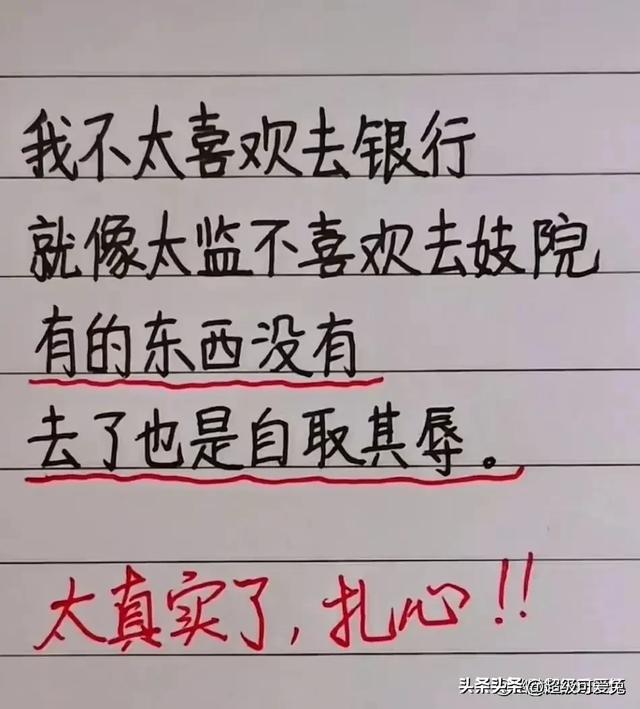 我不太喜欢去银行
就像太监不喜欢去妓院
有的东西没有
去了也是自取其辱。
太真实了,扎心!!
头条头条 @超级可爱兔